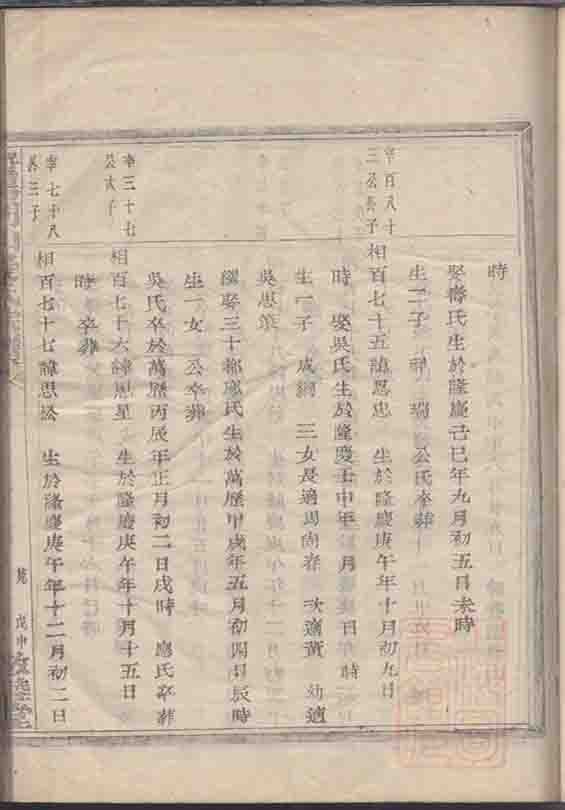 時
娶壽氏生於隆慶己巳年九月初五日未時
生二子 祥 瑞 公氏卒葬
宰百八十三公長子
相百七十五諱思忠 生於隆慶庚午年十月初九日
時 娶吳氏生於隆慶壬申年 月 日 時
生一子 成綱 三女長適馬尚春 次適黃 幼適
吳思策
繼娶三十都應氏生於萬歷甲戌年五月初四日辰時
生一女 公卒葬
吳氏卒於萬歷丙辰年正月初二日戌時 應氏卒葬
宰三十七公次子
相百七十六諱思星 生於隆慶庚午年十月十五日
時 卒葬
宰七十八公三子
相百七十七諱思松 生於隆慶庚午年十二月初二日
戊申